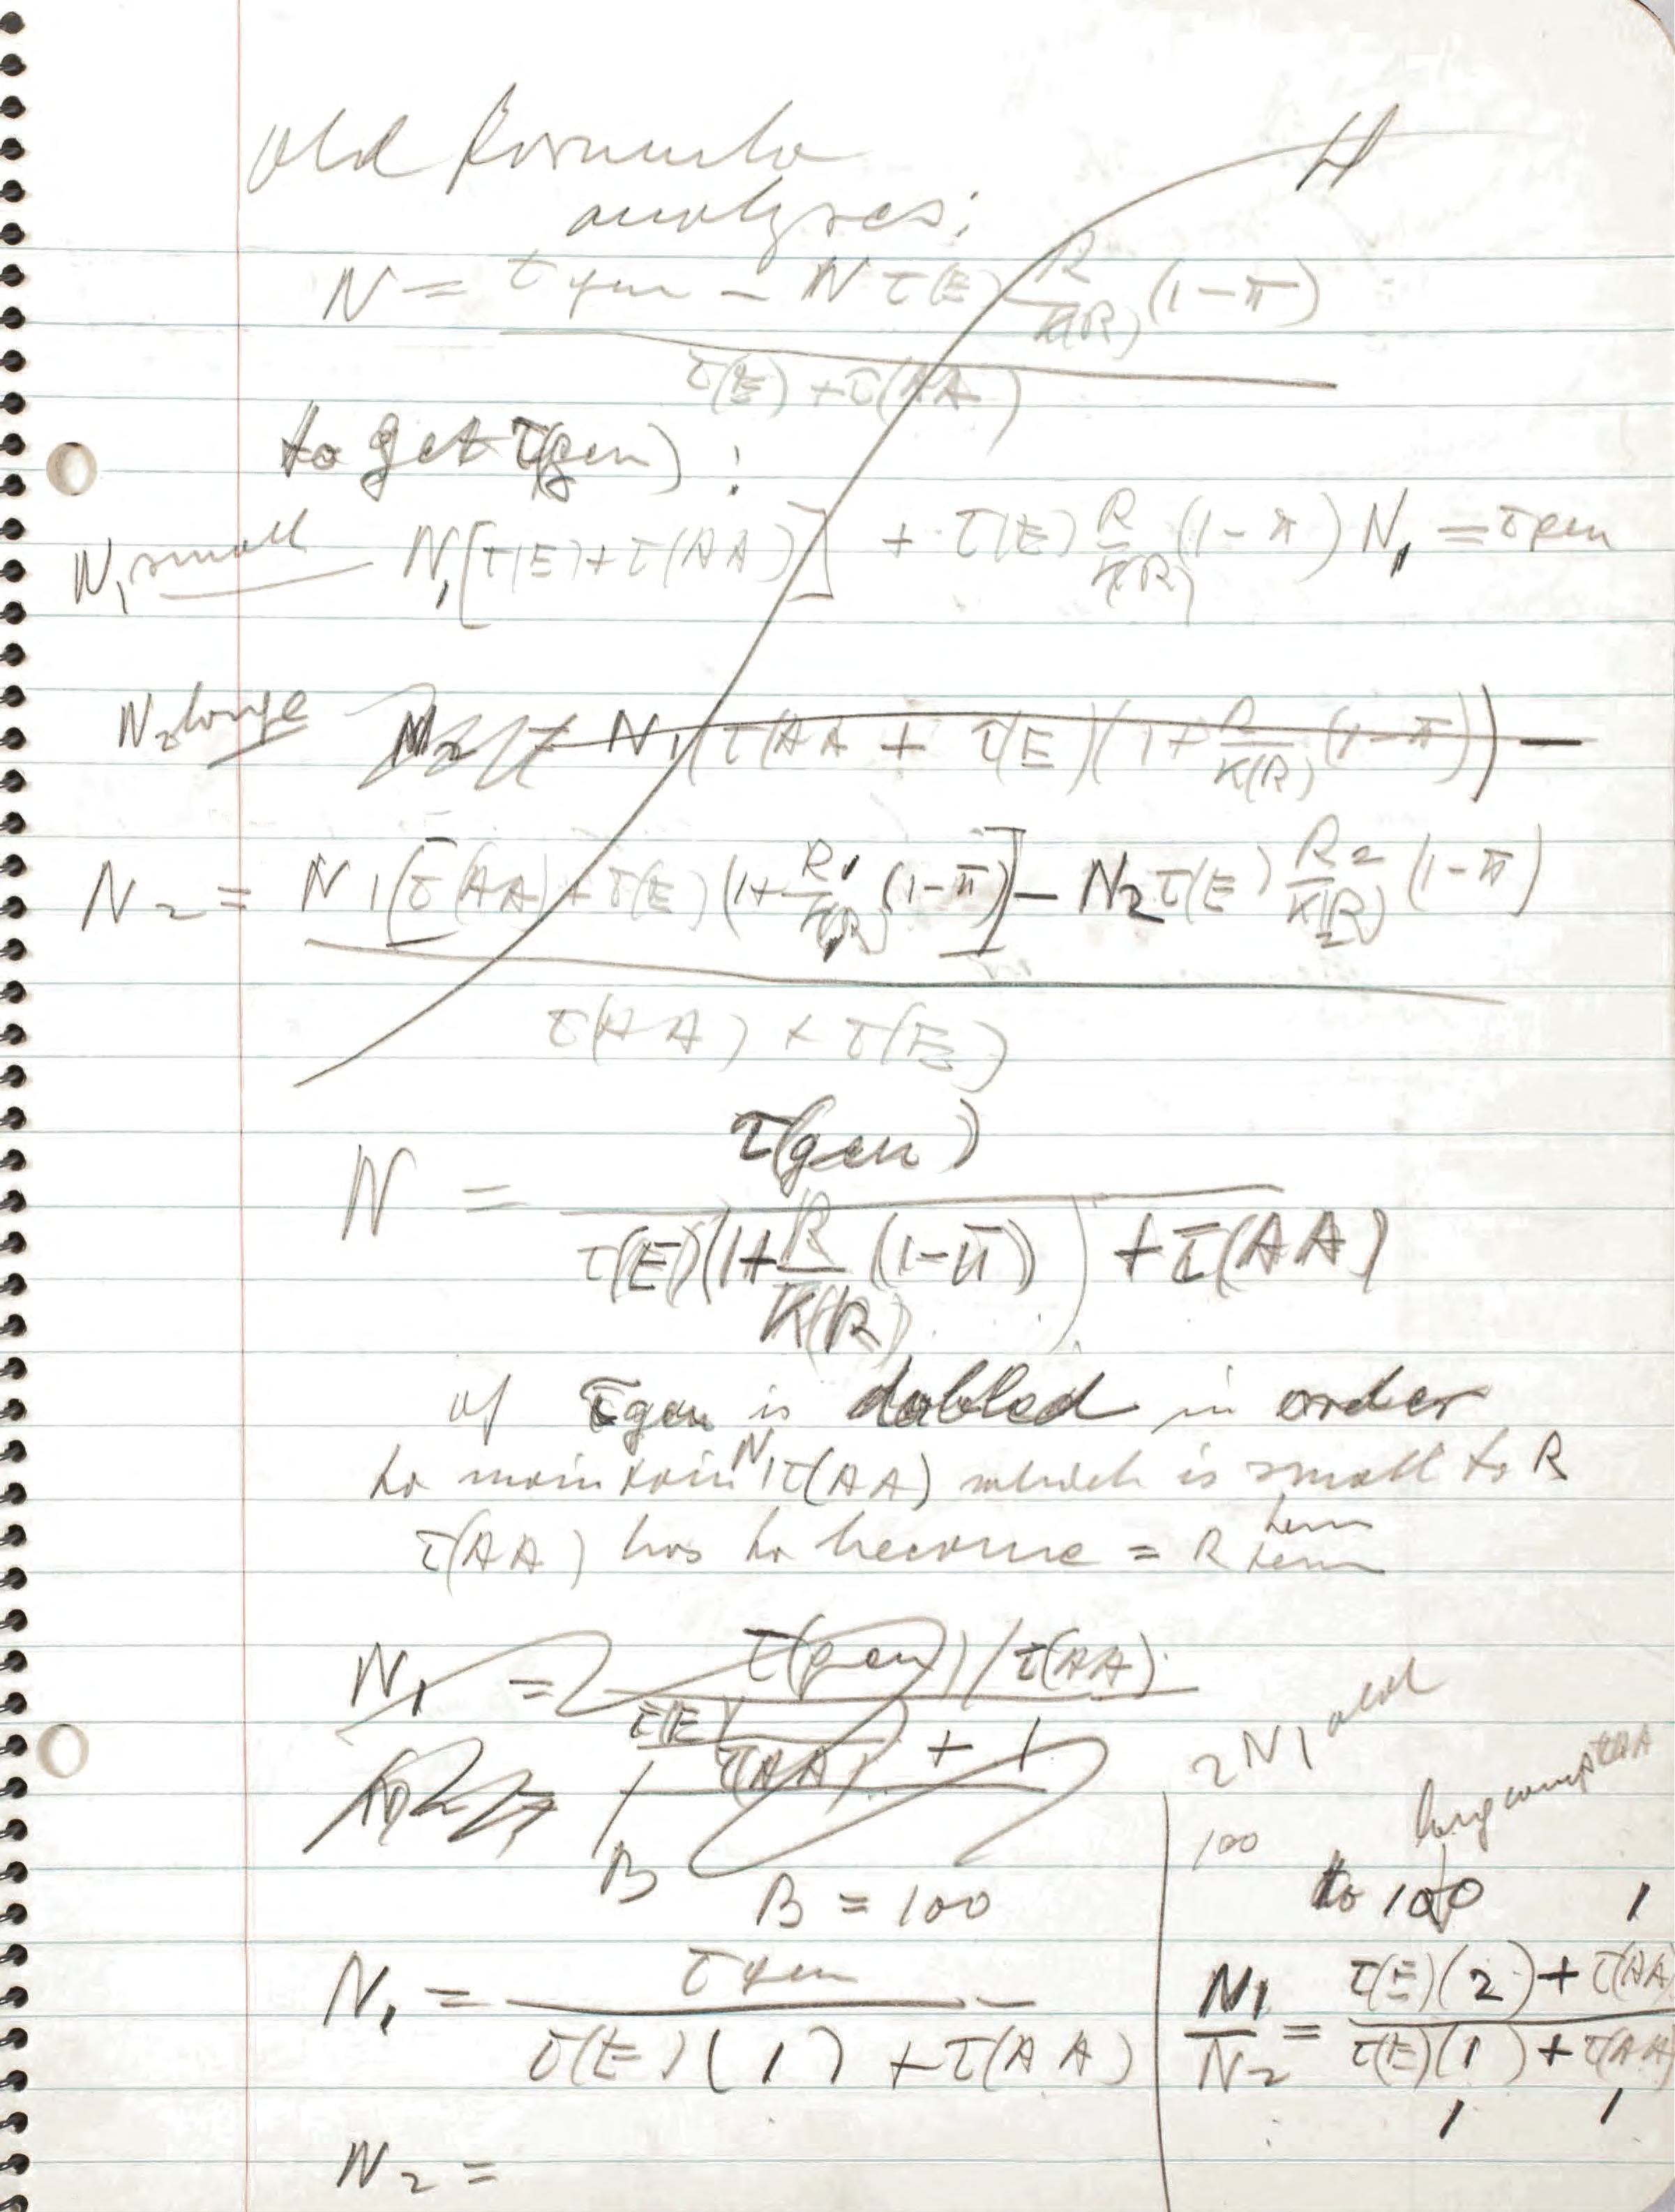 old formula H
analyses:
N = τ gen – N τ(E) R/K(R) (1-π)
τ(E) + τ(AA)
to get τ(gen) :
N₁ small N₁[τ(E)+τ(AA)] + τ(E) R/K(R) (1-π) N₁ = τ gen
N₂ large N₁(τ(AA + τ(E)(1+ R/K(R) (1-π)) –
N₂ = N₁[τ(AA)+τ(E)(1+ R₁/K(R) (1-π)] – N₂ τ(E) R₂/K(R) (1-π)
τ(AA) + τ(E)
N = τ(gen)
τ(E)(1+ R/K(R) (1-π)) + τ(AA)
if τgen is dobled in order
to maintain N₁τ(AA) which is small to R
τ(AA) has to become = R term
term
N₁ = τ(gen)/τ(AA)
τ(E)/τ(AA) + 1
B
B = 100
N₁ = τ gen
τ(E)(1) + τ(AA)
N₂ =
2N₁ old
100
to 100 1
N₁/N₂ = τ(E)(2) + τ(AA)
τ(E)(1) + τ(AA)
1 1